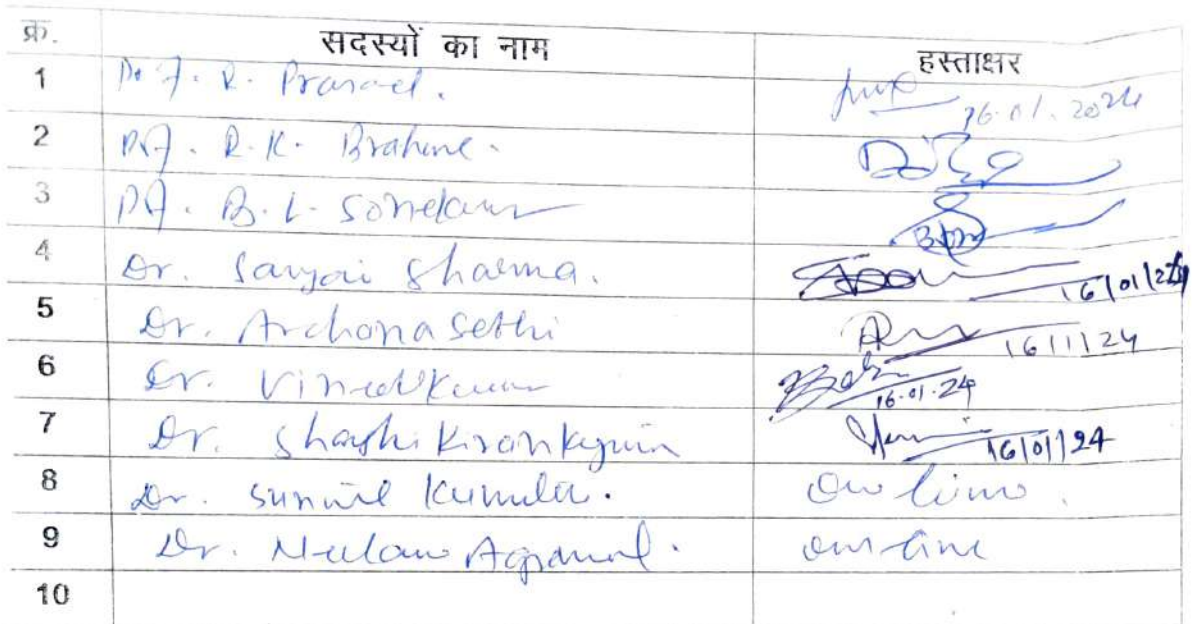 क्र. सदस्यों का नाम हस्ताक्षर
1 Prof. R. Prasad. 16.01.2024
2 Prof. R.K. Brahme.
3 Prof. B.L. Sonekar
4 Dr. Sanjai Sharma. 16/01/24
5 Dr. Archana Sethi 16/1/24
6 Dr. Vineet Kumar 16.01.24
7 Dr. Shashi Kiran Kujur 16/01/24
8 Dr. Sunil Kumeti. Online.
9 Dr. Neelam Agrawal. Online
10